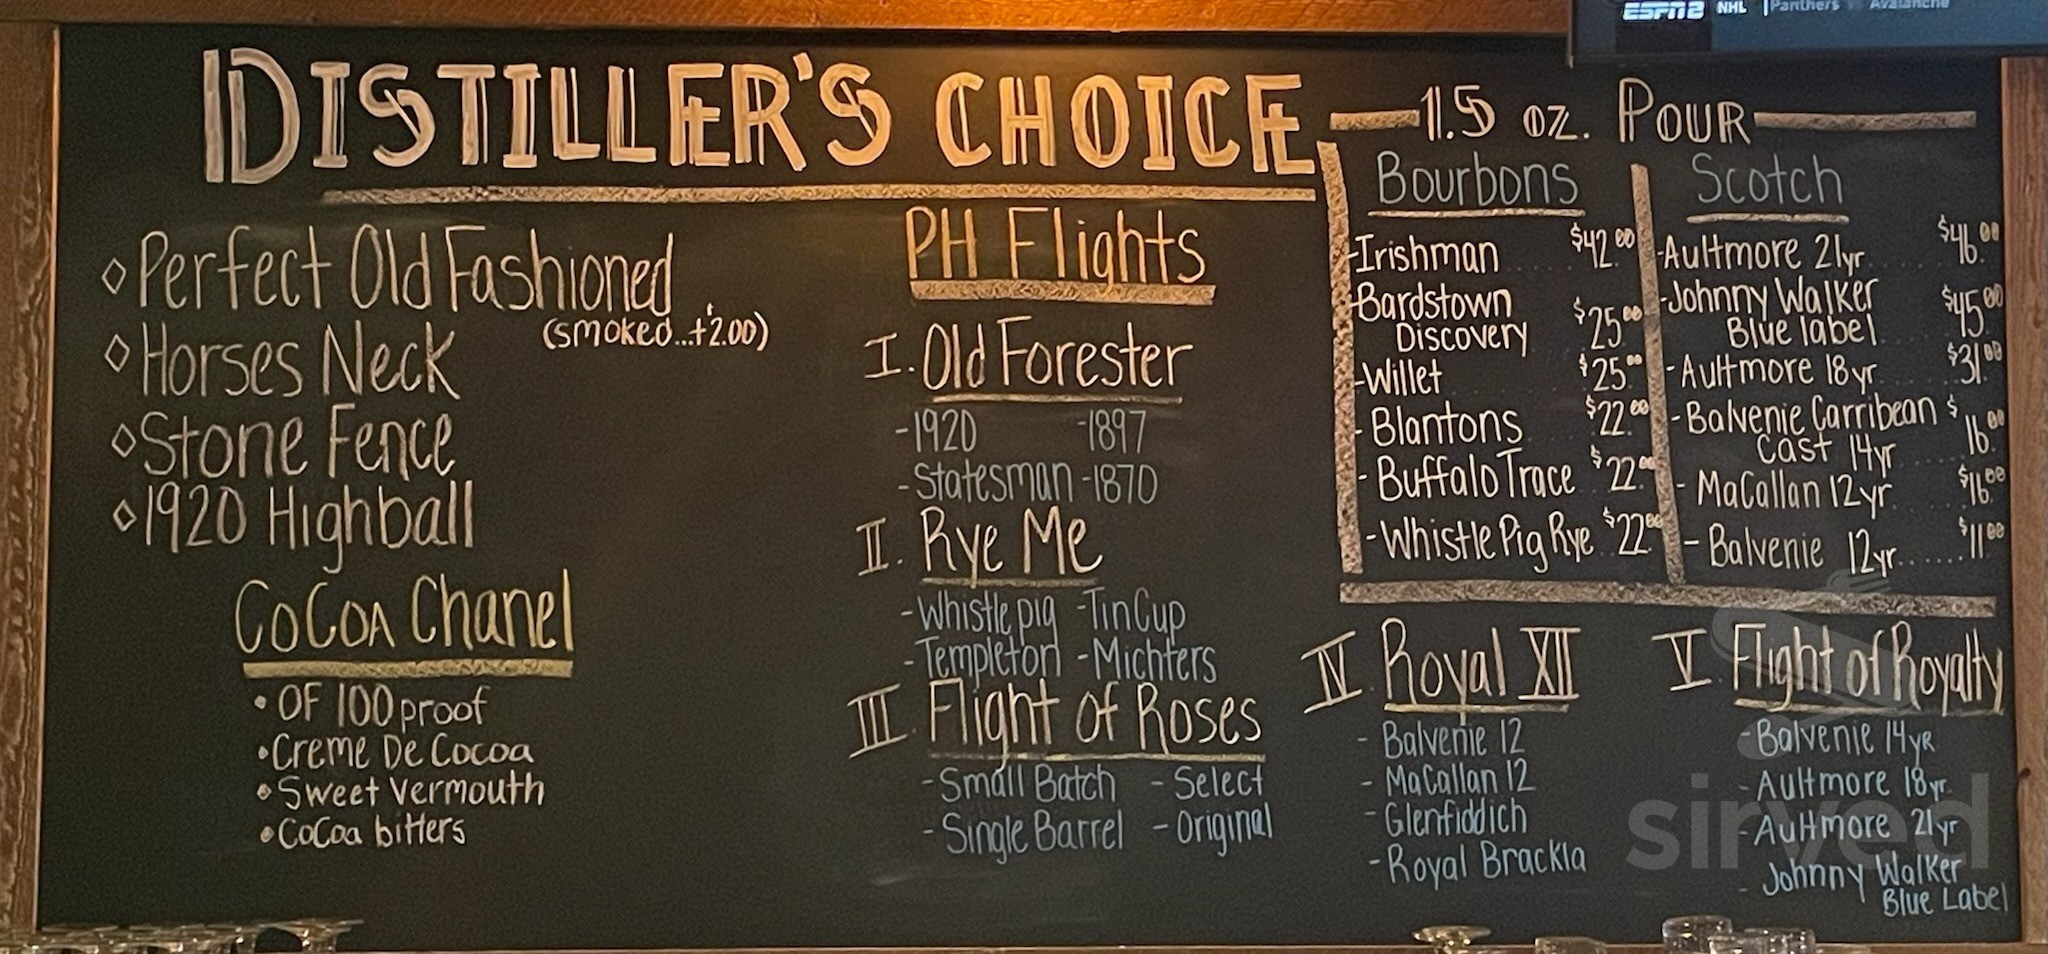 ESPN2 NHL Panthers Avalanche
DISTILLER'S CHOICE
Perfect Old Fashioned
(smoked...+$2.00)
Horses Neck
Stone Fence
1920 Highball
CoCoa Chanel
• OF 100 proof
• Creme De Cocoa
• Sweet Vermouth
• CoCoa bitters
PH Flights
I. Old Forester
-1920 -1897
-Statesman -1870
II. Rye Me
-Whistle pig -Tin Cup
-Templeton -Michters
III. Flight of Roses
-Small Batch -Select
-Single Barrel -Original
1.5 oz. Pour
Bourbons
-Irishman $42.00
-Bardstown
Discovery $25.00
-Willet $25.00
-Blantons $22.00
-Buffalo Trace $22.00
-Whistle Pig Rye $22.00
Scotch
-Aultmore 21yr $46.00
-Johnny Walker
Blue label $45.00
-Aultmore 18yr $31.00
-Balvenie Carribean $
Cast 14yr 16.00
-MaCallan 12yr $16.00
-Balvenie 12yr..... $11.00
IV. Royal XII
- Balvenie 12
- MaCallan 12
- Glenfiddich
- Royal Brackla
V. Flight of Royalty
-Balvenie 14yr
-Aultmore 18yr.
-Aultmore 21yr
- Johnny Walker
Blue Label
sirved